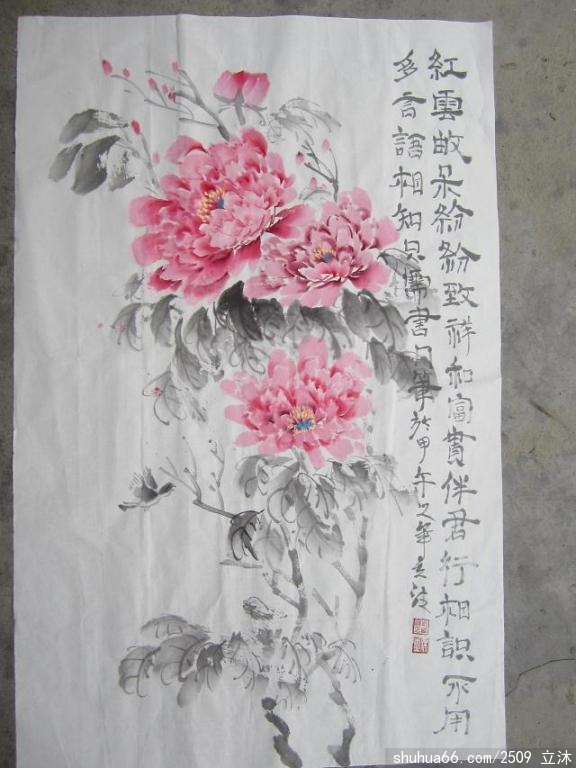 紅雲故朵紛紛致祥和富貴伴君行相識不用
多言語相知只需書 筆於甲午之年 波
shuhua66.com/2509 立沐